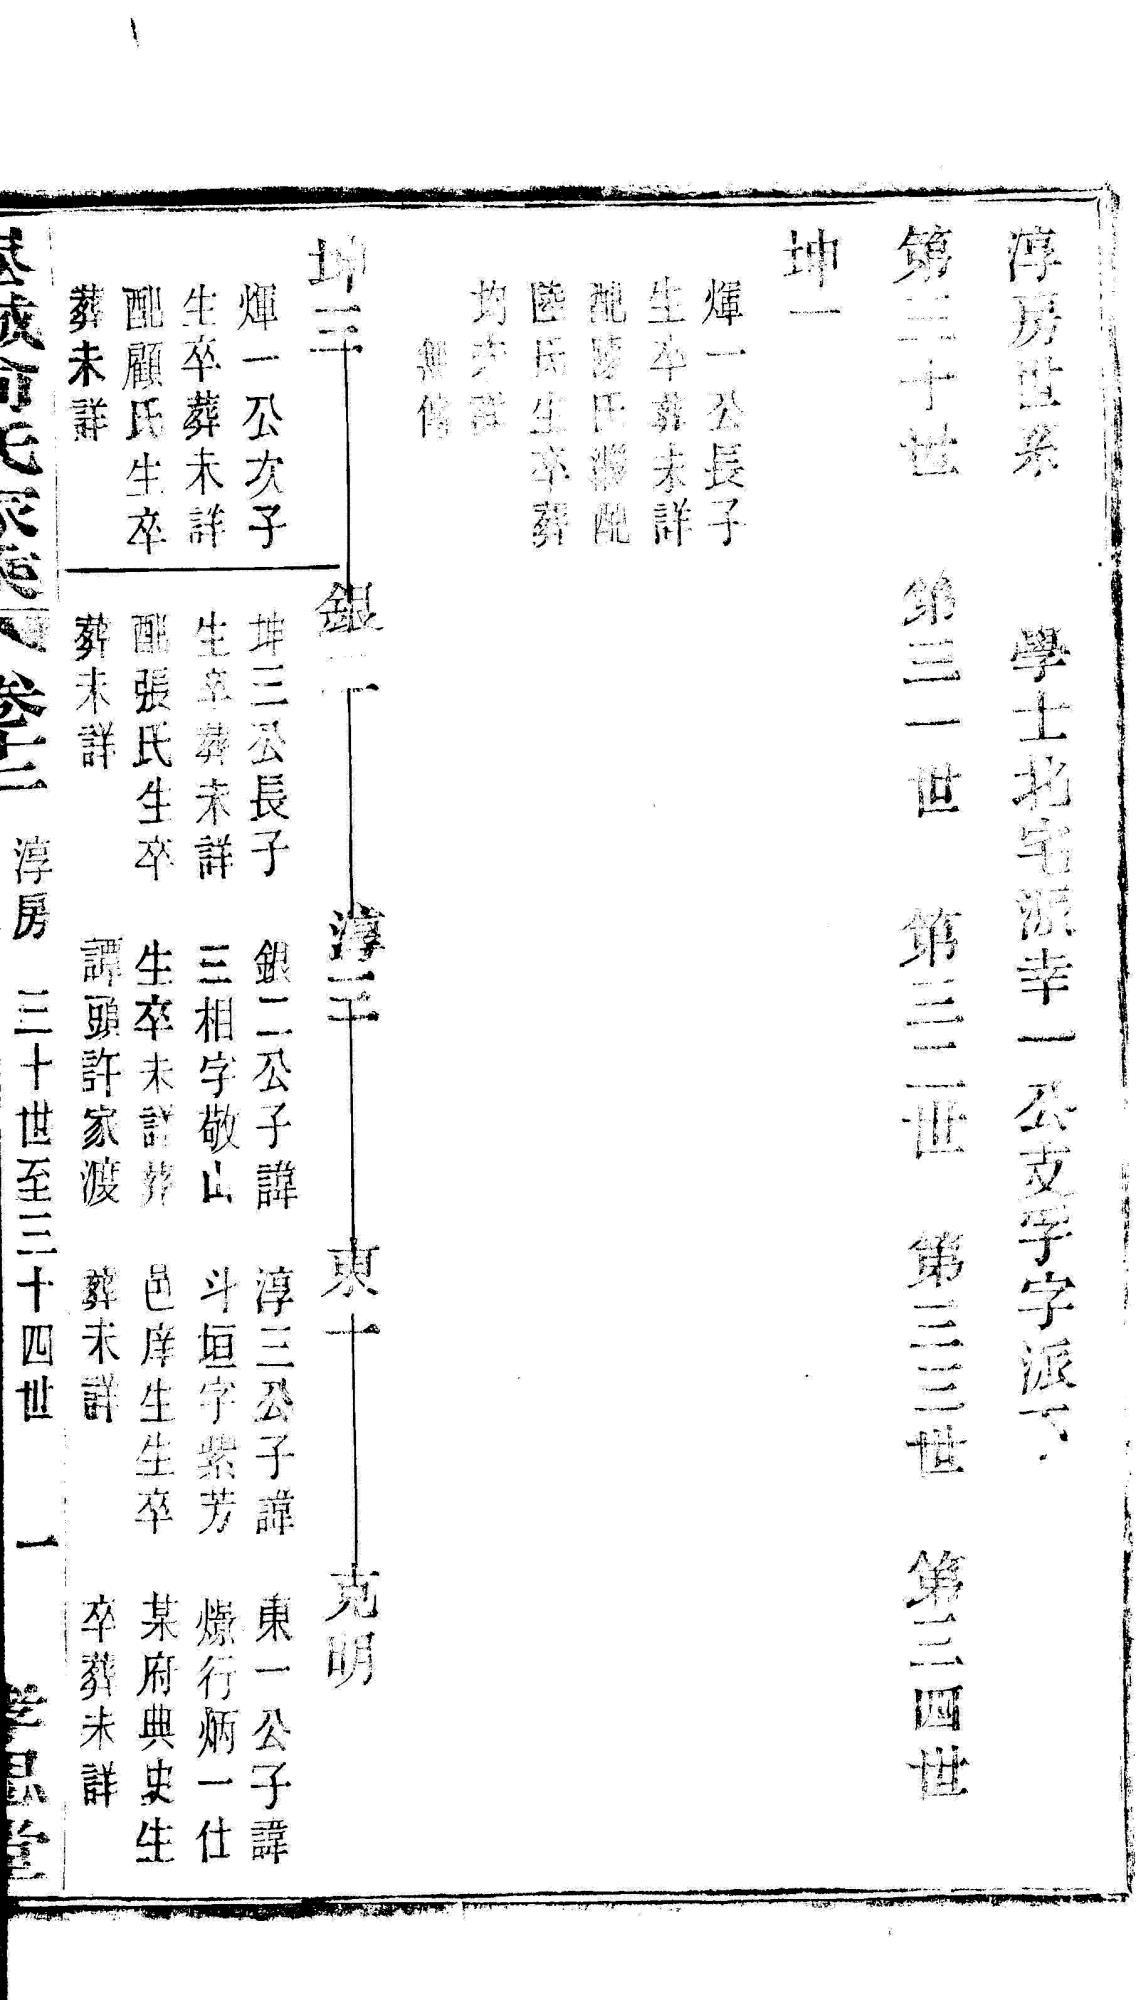 淳房世系 學士北宅派幸一公支孚字派下
第三十世 第三一世 第三二世 第三三世 第三四世
坤一
煇一公長子
生卒葬未詳
配陸氏繼配
陸氏生卒葬
均未詳
無傳
坤三 銀二 淳三 東一 克明
煇一公次子
生卒葬未詳
配顧氏生卒
葬未詳
坤三公長子
生卒葬未詳
配張氏生卒
葬未詳
銀二公子諱
三相字敬山
生卒未詳葬
譚頭許家渡
淳三公子諱
斗垣字紫芳
邑庠生生卒
葬未詳
東一公子諱
燝行炳一仕
某府典史生
卒葬未詳
氏家乘 卷十二 淳房 三十世至三十四世 一 孝思堂